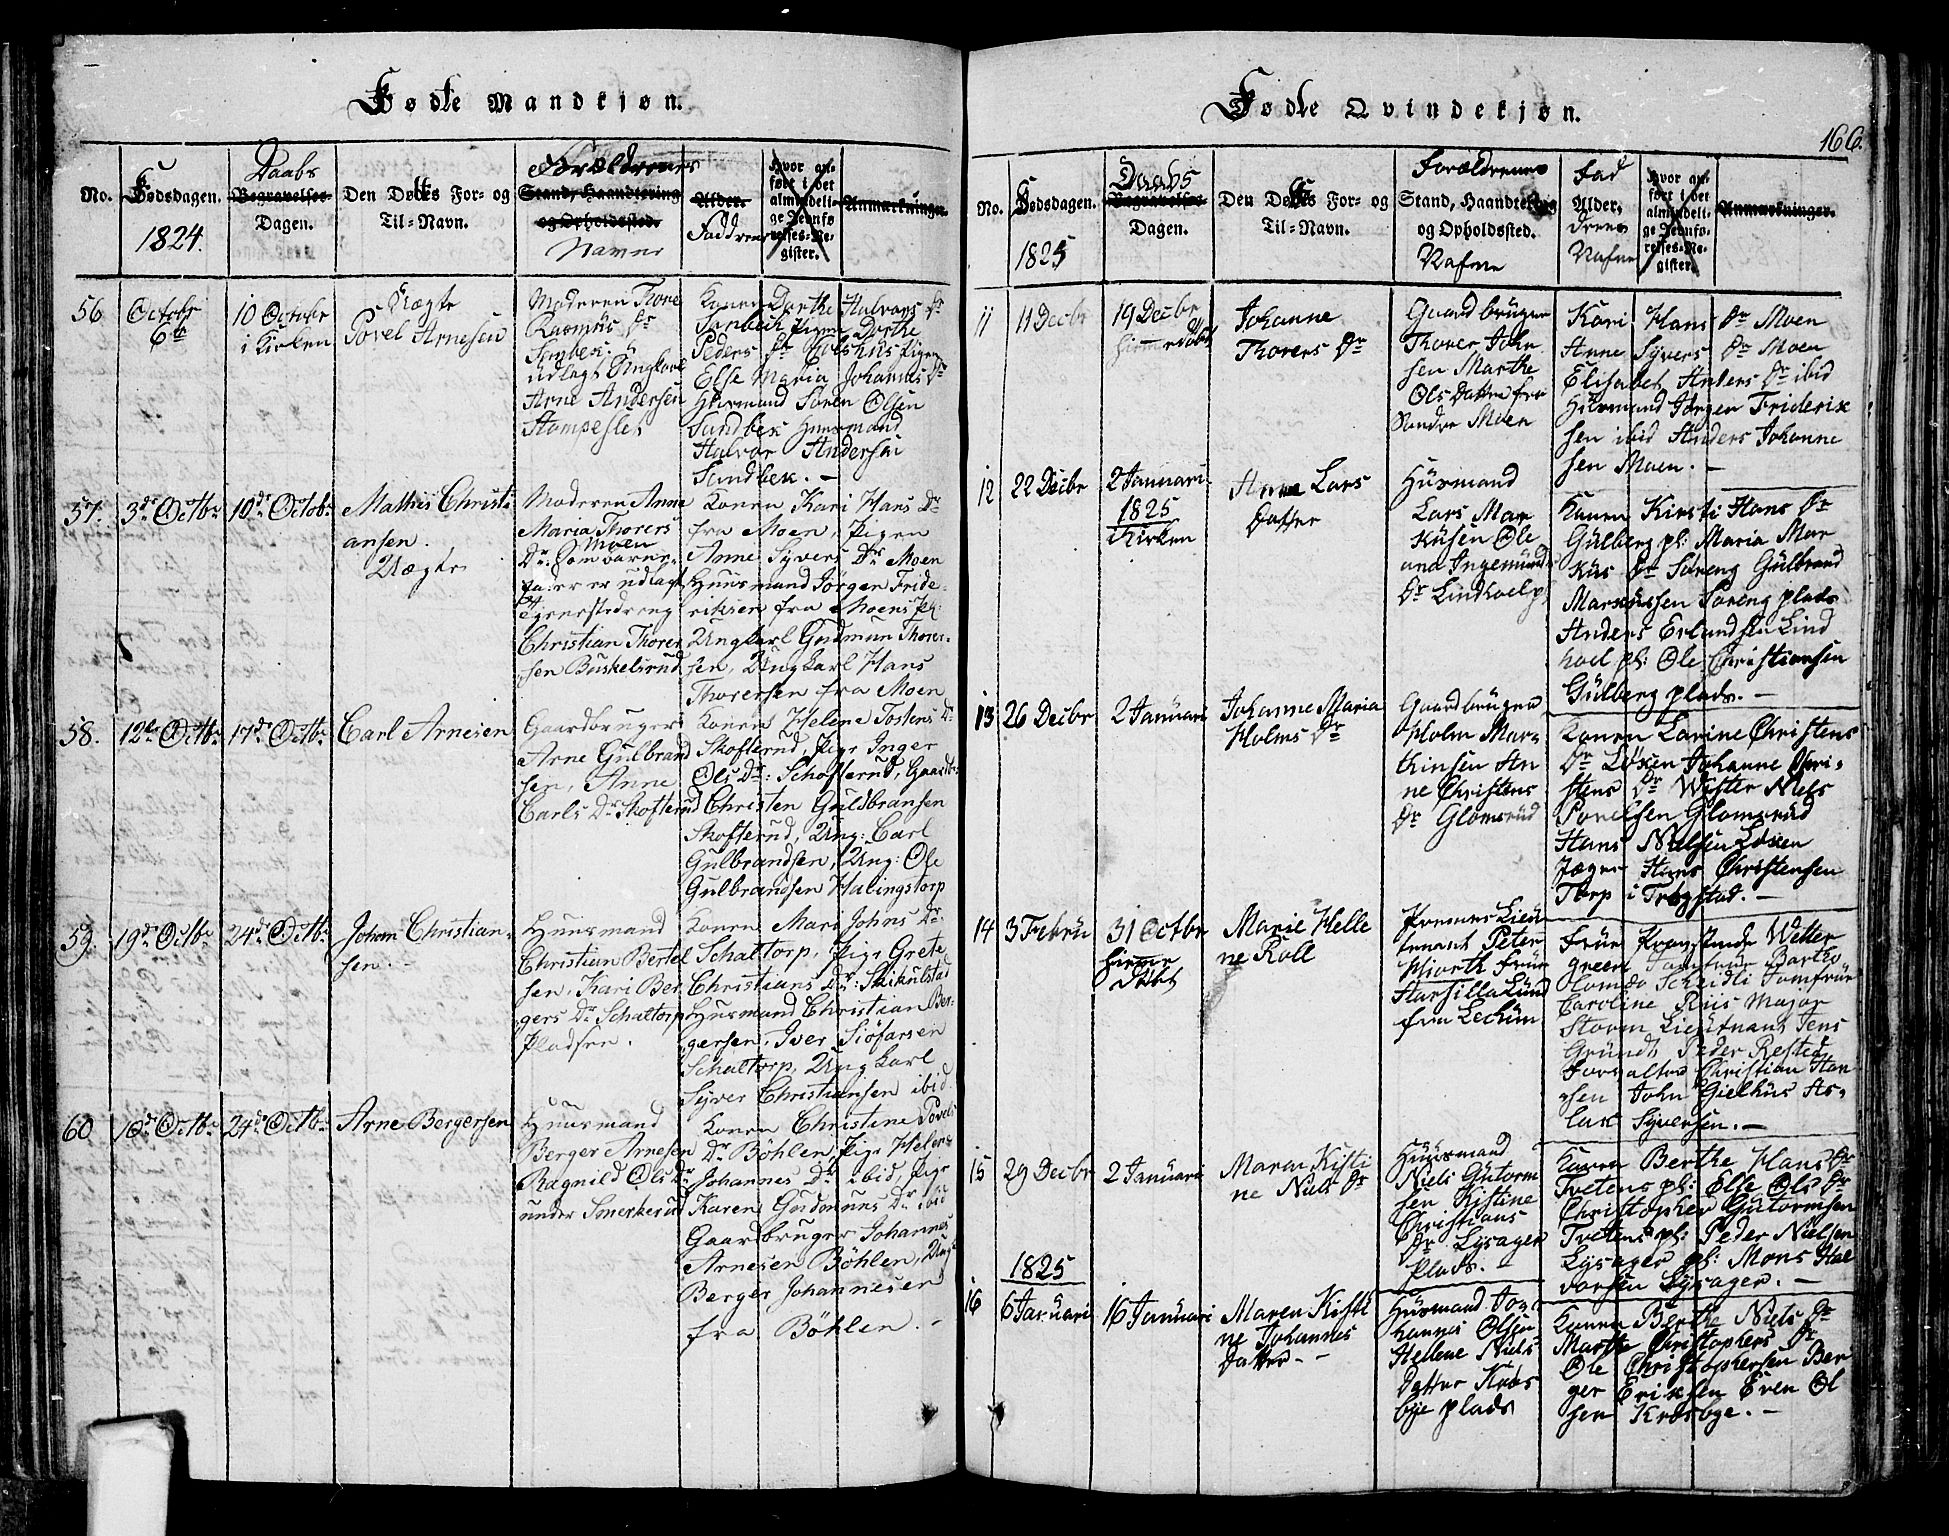 Fødte Mandkjøn.
No.
Fødsdagen.
1824.
Daabs
Begravelses-
Dagen.
Den Døbtes For- og
Til-Navn.
Forældrenes
Stand, Haandtering
og Opholdssted.
Navne
Alder.
Faddrenes
Hvor an-
ført i det
almindeli-
ge Jevnfø-
relses-Re-
gister.
Anmærkninger.
56
Octobr
6te
10 Octobr
i Kirken
Uægte
Povel Arnesen
Moderen Thore
Rasmus Dr
Sandbek
udlagt Ungkarl
Arne Andersen
Stampeslet
Konen Dorthe Halvors Dr
Sandbek Pigen Dorthe
Peders Dr Pigen
Else Maria Johannes Dr
Huusmand Søren Olsen
Sandbek Huusmand
Halvor Andersen
Sandbek. -
57.
3de Octbr
10de Octob:
Mathis Christi
ansen.
Uægte
Moderen Anne
Maria Thorers
Dr. Moen som barne-
fader er udlagt
Tjenestedreng
Christian Thorer
sen Buskelsrud
Konen Kari Hans Dr
fra Moen, Pigen
Anne Syvers Dr Moen
Huusmand Jørgen Fride-
riksen fra Moens Pl:
Ungkarl Gudmun Thorer-
sen, Ungkarl Hans
Thorersen fra Moen
58.
12te Octbr
17de Octbr
Carl Arnesen
Gaardbruger
Arne Gulbrand
sen, Anne
Carls Dr Skofterud
Konen Helene Tostens Dr
Skofterud, Pige Inger
Ols Dr: Skofterud, Gaardbr:
Christen Guldbransen
Skofterud, Ung: Carl
Gulbrandsen, Ung: Ole
Gulbrandsen Halingstorp
59.
19de Octbr
24de Octbr
Johan Christian-
sen.-
Huusmand
Christian Bertel
sen, Kari Ber
gers Dr Schaltorp
Pladsen.
Konen Mari Johns Dr
Schaltorp, Pige Grete
Christians Dr: Skikulstad
Husmand Christian Ber-
gersen, Iver Siöfarsen
Schaltorp, Ungkarl
Syver Christiansen ibid
60
18de Octbr
24de Octbr
Arne Bergersen
Huusmand
Berger Arnesen
Ragnild Ols Dr
under Smerkerud
Konen Christine Povels
Dr Böhlen, Pige Helene
Johannes Dr ibid, Pige
Karen Gudmuns Dr ibid
Gaardbruger Johannes
Arnesen Böhlen, Ung:
Berger Johannesen
fra Böhlen. -
Fødte Qvindekjøn.
166.
No.
Fødsdagen.
1825
Daabs
Begravelses-
Dagen.
Den Døbtes For- og
Til-Navn.
Forældrenes
Stand, Haandtering
og Opholdssted.
Nafne
Fad
Alder.
drenes
Nafne
Hvor an-
ført i det
almindeli-
ge Jevnfø-
relses-Re-
gister.
Anmærkninger.
11
11 Decbr
19 Decbr
Himmedøbt
Johanne
Thorers Dr
Gaardbruger
Thorer John
sen Marthe
Ols Datter fra
Søndre Moen
Kari Hans Dr Moen
Anne Syvers Dr Moen
Elisabet Anders Dr ibid
Husmand Jørgen Friderik
sen ibid Anders Johanne
sen Moen. -
12
22 Decbr
2 Januari
1825
Kirken
Anne Lars
Datter
Husmand
Lars Mar
kusen Ole
ana Ingemund
Dr Lindhoel p
Konen Kirsti Hans Dr
Gulberg pl: Maria Mar
kus Dr Søreng Gulbrand
Markussen Søreng plads
Anders Erlandsen Lind
hoel pl: Ole Christiansen
Gulberg plads. -
13
26 Decbr
2 Januari
Johanne Maria
Holms Dr
Gaardbrugen
Holm Mar-
thinsen An
ne Christens
Dr Glomsrud
Konen Larine Christens
Dr Løken Johanne Chri-
stens Dr Wister Niels
Povelsen Glomsrud
Hans Nielsen Løken
Jæger Hans Christensen
Torp i Trøgstad. -
14
3 Febru
31 Octbr
Himme
Døbt
Marie Helle
ne Roll
Premier Lieu
tenant Peter
Hiorth Frue
Harsilla Lund
fra Lechum
Frue Wetter
green Jomfrue Bartho
Schridli Jomfrue
Caroline Riis Major
Storm Lieutnant Jens
Grundt Peder Rested
Forvalter Christian Han
sen John Gielhus As-
lak Syversen. -
15
29 Decbr
2 Januari
Maren Kisti
ne Niels Dr
Huusmand
Niels Gutorm
sen Kistine
Christians
Dr Lysager
Plads. -
Karen Berthe Hans Dr
Tvetens pl: Else Ols Dr
Christopher Gutormsen
Tvetens pl: Peder Nielsen
Lysager pl: Mons Hal
vorsen Lysager. -
1825
16
6 Januari
16 Januari
Maren Kisti
ne Johannes
Datter - -
Husmand Jo
hannes Olsen
Hellene Niels
Datter Kaas
bye plads
Konen Berthe Niels Dr
Marthe Christophers Dr
Ole Christophersen Ber
ger Eriksen Even Ol
sen Kræsbye. -